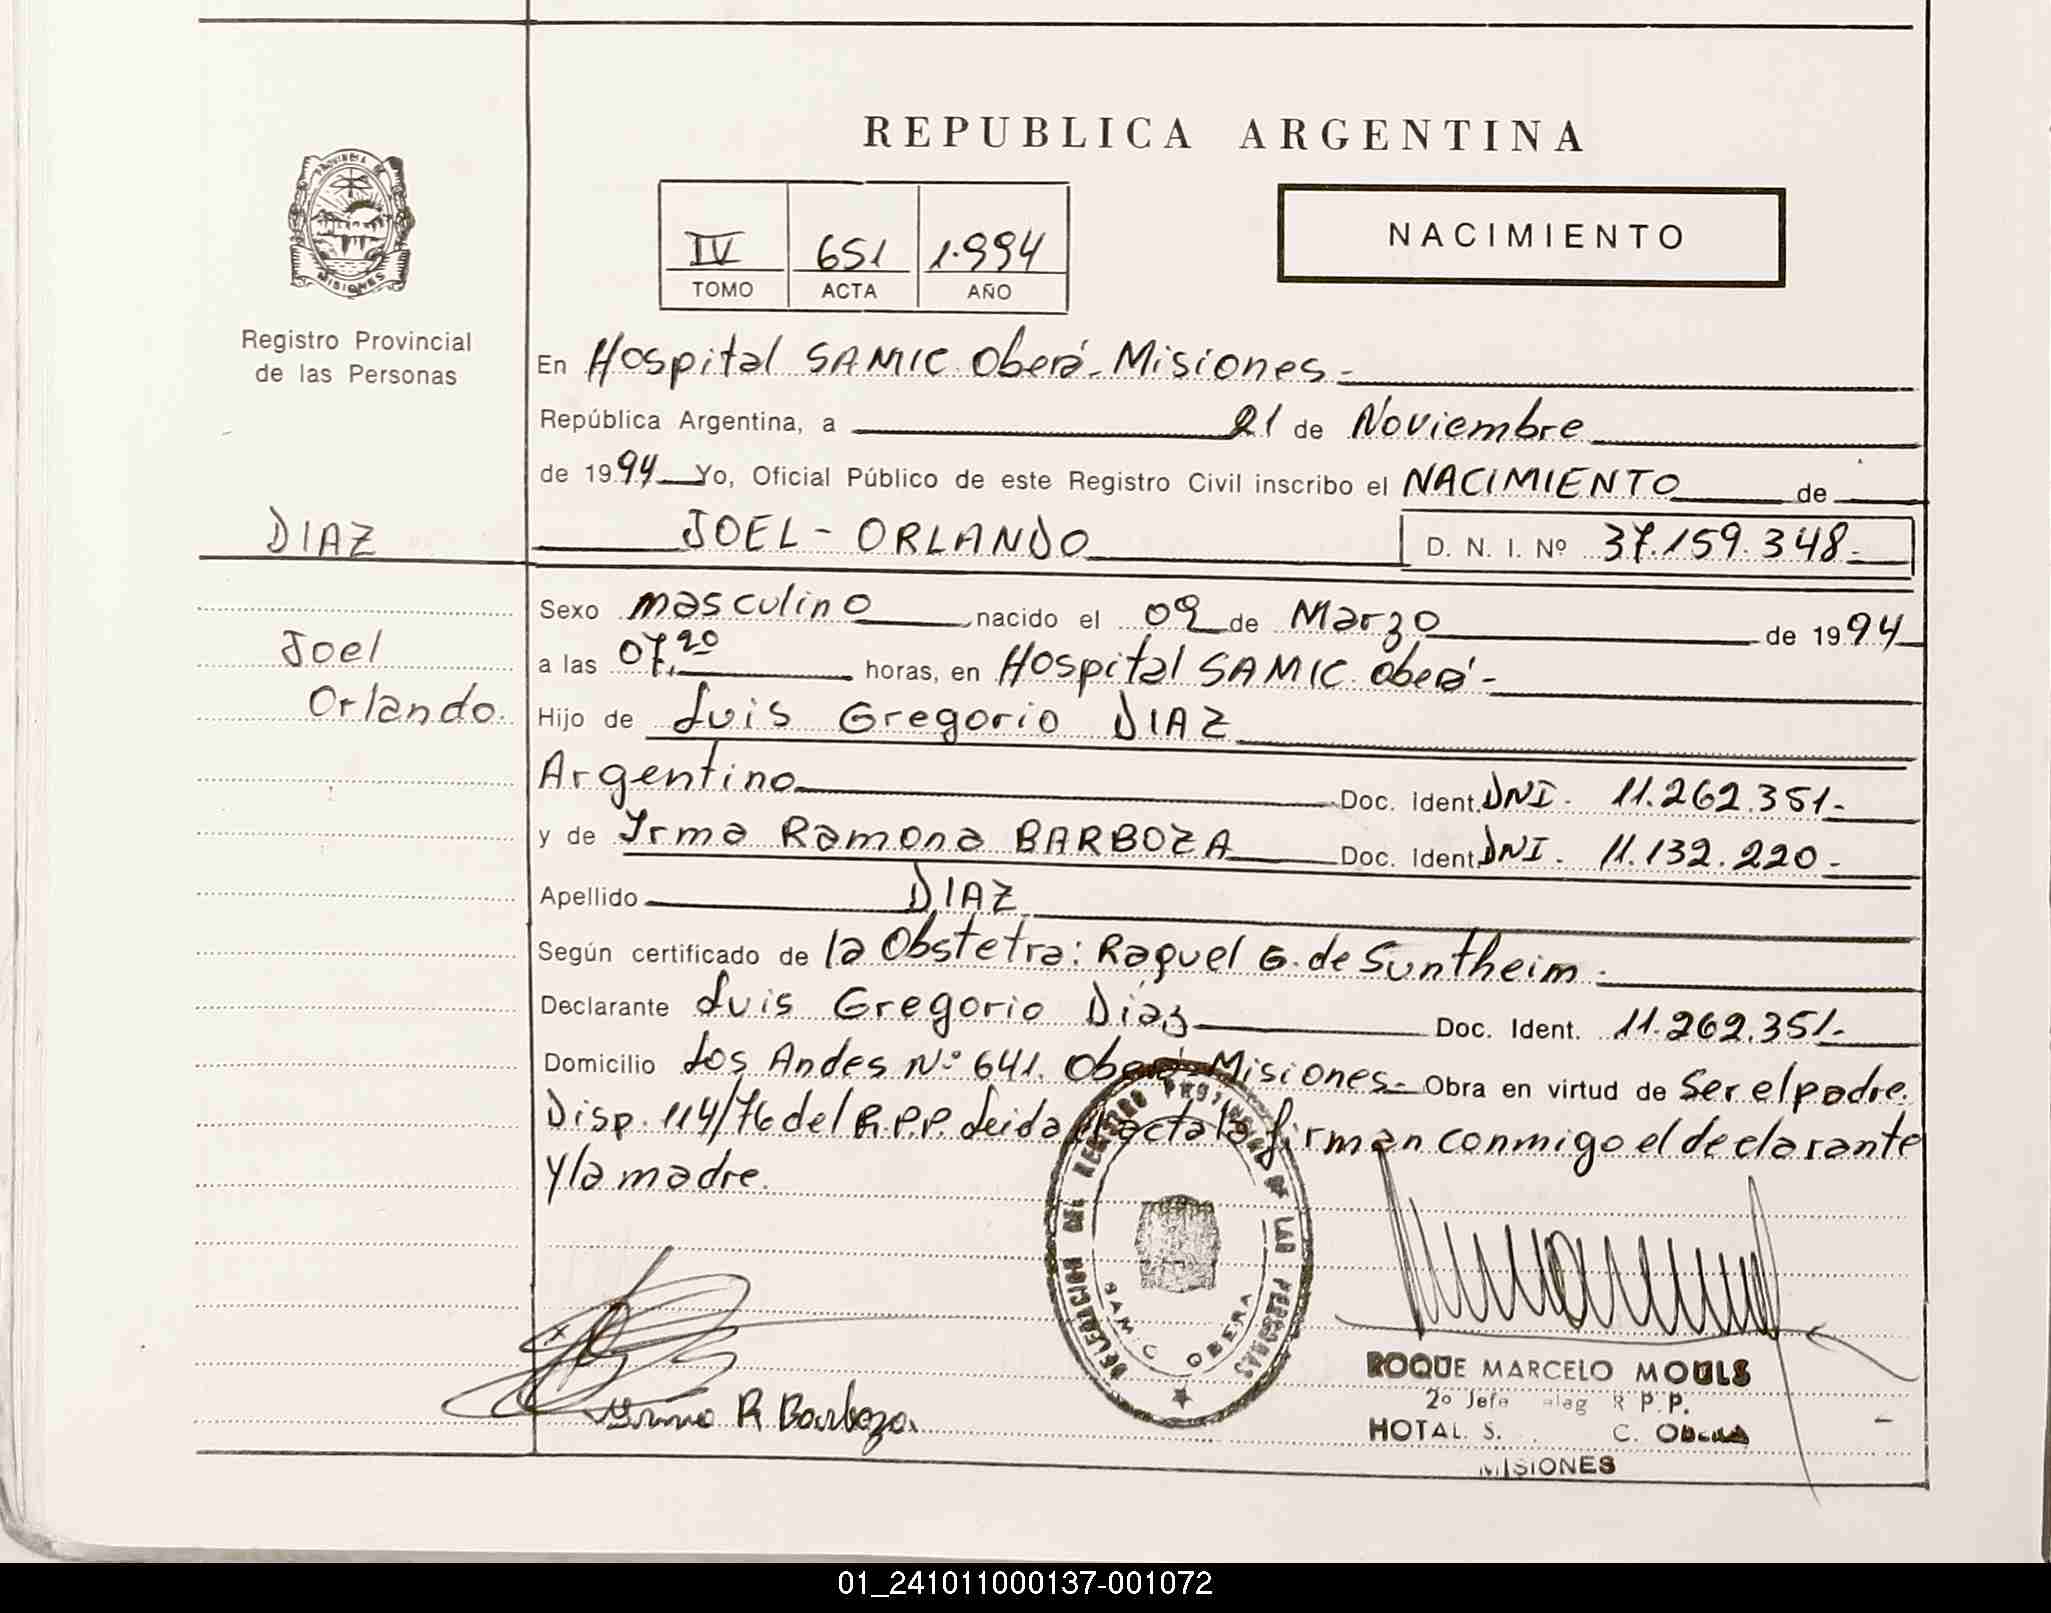 REPUBLICA ARGENTINA
PROVINCIA DE
MISIONES
Registro Provincial
de las Personas
IV 651 1.994
TOMO ACTA AÑO
NACIMIENTO
En Hospital SAMIC Oberá - Misiones -
República Argentina, a 21 de Noviembre
de 1994 Yo, Oficial Público de este Registro Civil inscribo el NACIMIENTO de
DIAZ JOEL - ORLANDO D. N. I. Nº 37.159.348.-
Sexo masculino nacido el 09 de Marzo de 1994
Joel
a las 07,20 horas, en Hospital SAMIC Oberá -
Orlando. Hijo de Luis Gregorio DIAZ
Argentino Doc. Ident. DNI. 11.262.351-
y de Irma Ramona BARBOZA Doc. Ident. DNI. 11.132.220-
Apellido DIAZ
Según certificado de la Obstetra: Raquel G. de Suntheim.
Declarante Luis Gregorio Diaz Doc. Ident. 11.262.351.-
Domicilio Los Andes Nº 641. Oberá - Misiones - Obra en virtud de Ser el padre.
Disp. 114/76 del R.P.P. Leida el acta la firman conmigo el declarante
y la madre.
DELEGACION DEL REGISTRO PROVINCIAL DE LAS PERSONAS
SAMIC OBERA
Irma R Barboza
ROQUE MARCELO MOULS
2º Jefe R P.P.
HOTAL. S. C.
MISIONES
01_241011000137-001072